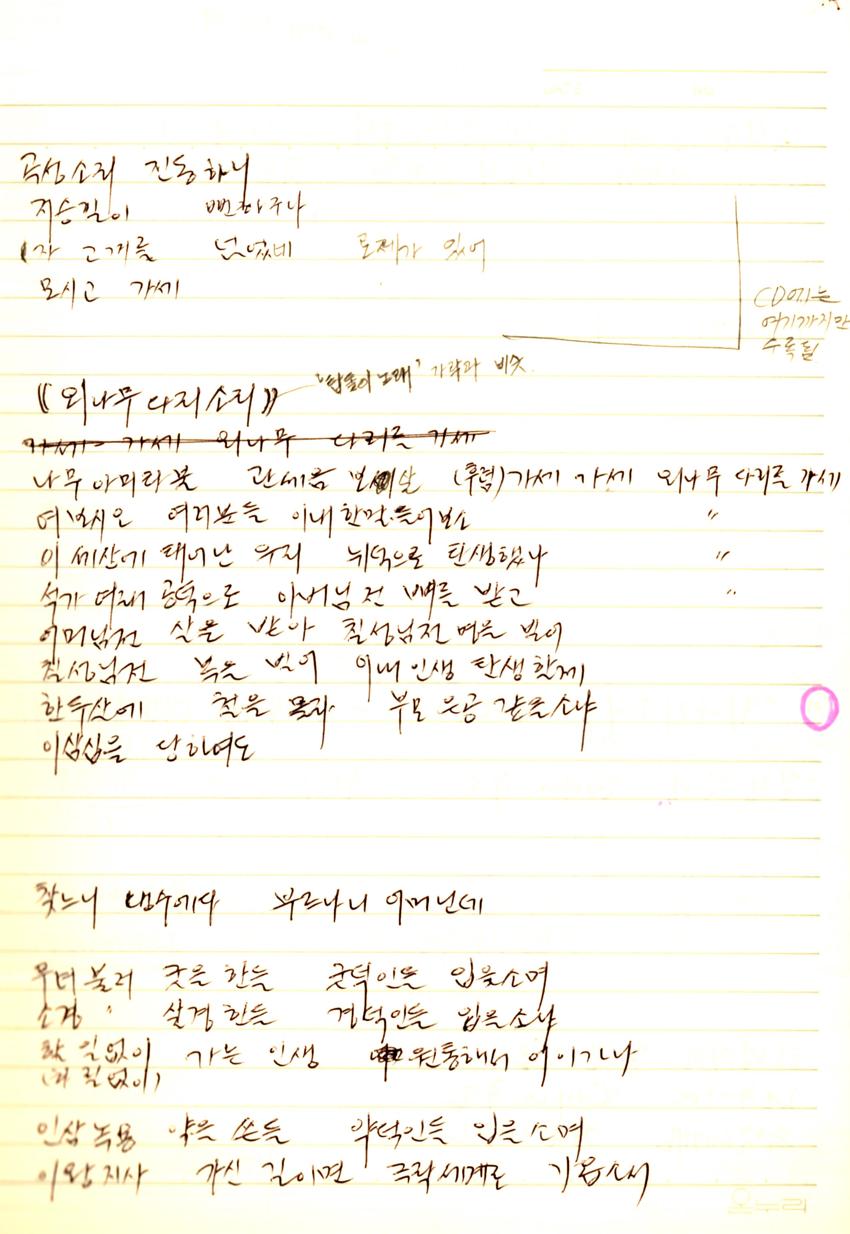 곡성소리 진동하니
저승길이 뻔하구나
자 고개를 넘었네 로제가 있어
모시고 가세
CD에는
여기까지만
수록됨
《외나무다리소리》 가락과 비슷.
가세 가세 외나무 다리로 가세
나무아미타불 관세음 보살 (후렴) 가세 가세 외나무 다리로 가세
여보시오 여러분들 이내 한말 들어보소 〃
이 세산에 태어난 우리 뉘덕으로 탄생했나 〃
석가여래 공덕으로 아버님전 뼈를 받고 〃
어머님전 살을 받아 칠성님전 명을 빌어
칠성님전 복을 빌어 이내 인생 탄생한게
한두살에 철을 몰라 부모 은공 갚을소냐
이삼십을 당하여도
찾느니 냉수에다 부르나니 어머닌데
무녀 불러 굿을 한들 굿덕인들 입을소며
소경 〃 살경 한들 경덕인들 입을소냐
할 일없이 가는 인생 원통해서 어이가나
(허릴없이)
인삼 녹용 약을 쓴들 약덕인들 입을소며
이왕지사 가신 길이면 극락세계로 가옵소서
온누리